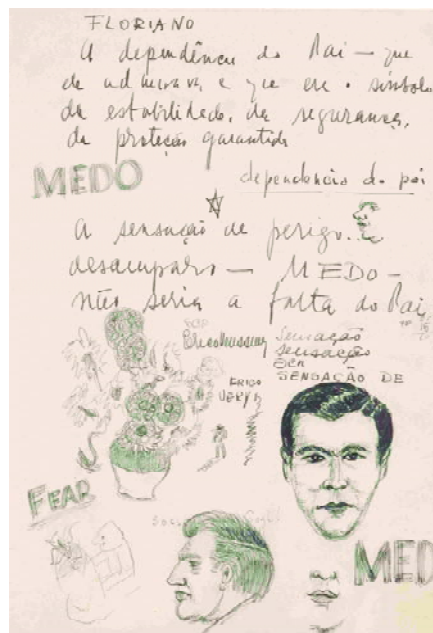 FLORIANO
A dependência do Pai — que
ele admirava e que era o símbolo
da estabilidade, da segurança,
da proteção garantida
MEDO
dependencia do pai
A sensação de perigo...
desamparo — MEDO —
não seria a falta do Pai
Sensação
sensação
SENSAÇÃO DE
ERICO
FEAR
MED